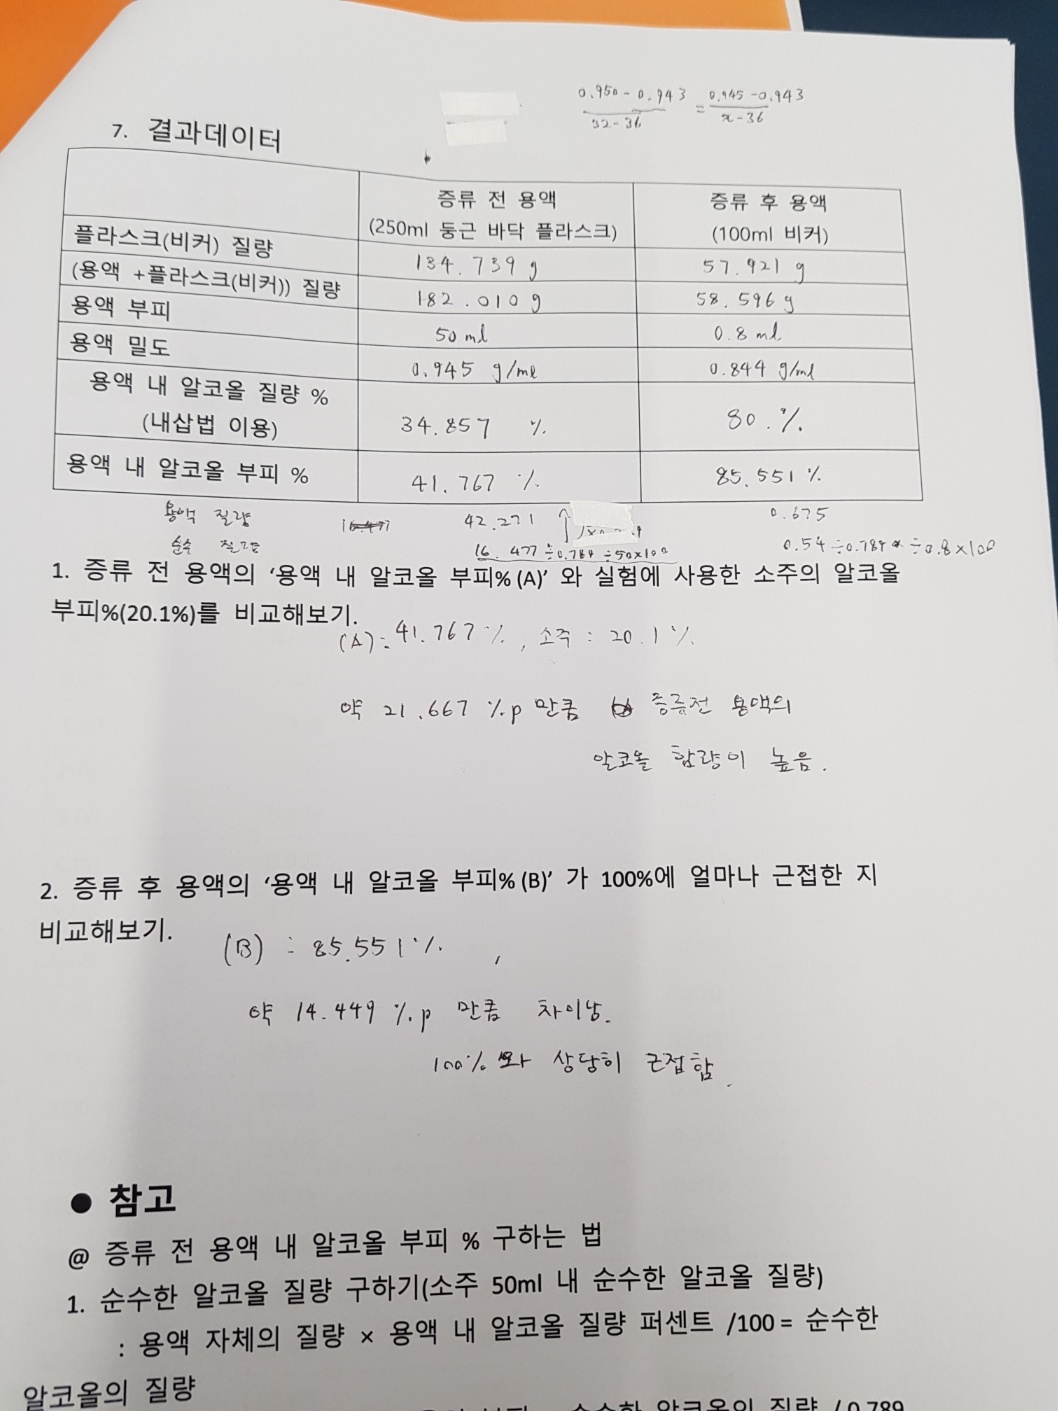 0.950 - 0.943 / 32-36 = 0.945 - 0.943 / x-36
7. 결과데이터
증류 전 용액 증류 후 용액
(250ml 둥근 바닥 플라스크) (100ml 비커)
플라스크(비커) 질량 134.739 g 57.921 g
(용액 +플라스크(비커)) 질량 182.010 g 58.596 g
용액 부피 50 ml 0.8 ml
용액 밀도 0.945 g/ml 0.844 g/ml
용액 내 알코올 질량 %
(내삽법 이용) 34.857 % 80. %
용액 내 알코올 부피 % 41.767 % 85.551 %
용액 질량 42.271 0.675
순수 질량 16.477÷0.789÷50×100 0.54÷0.789÷0.8×100
1. 증류 전 용액의 ‘용액 내 알코올 부피% (A)’ 와 실험에 사용한 소주의 알코올
부피%(20.1%)를 비교해보기.
(A): 41.767 %, 소주 : 20.1 %
약 21.667 %p 만큼 증류전 용액의
알코올 함량이 높음.
2. 증류 후 용액의 ‘용액 내 알코올 부피% (B)’ 가 100%에 얼마나 근접한 지
비교해보기.
(B) : 85.551 %,
약 14.449 %p 만큼 차이남.
100% 와 상당히 근접함.
● 참고
@ 증류 전 용액 내 알코올 부피 % 구하는 법
1. 순수한 알코올 질량 구하기(소주 50ml 내 순수한 알코올 질량)
: 용액 자체의 질량 × 용액 내 알코올 질량 퍼센트 /100 = 순수한
알코올의 질량
순수한 알코올의 질량 / 0.789